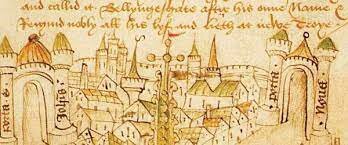 and callid it Bellyngesgate after his oune Name &
Regnid nobly all his lyf and lieth at newe Troye
porta
porta